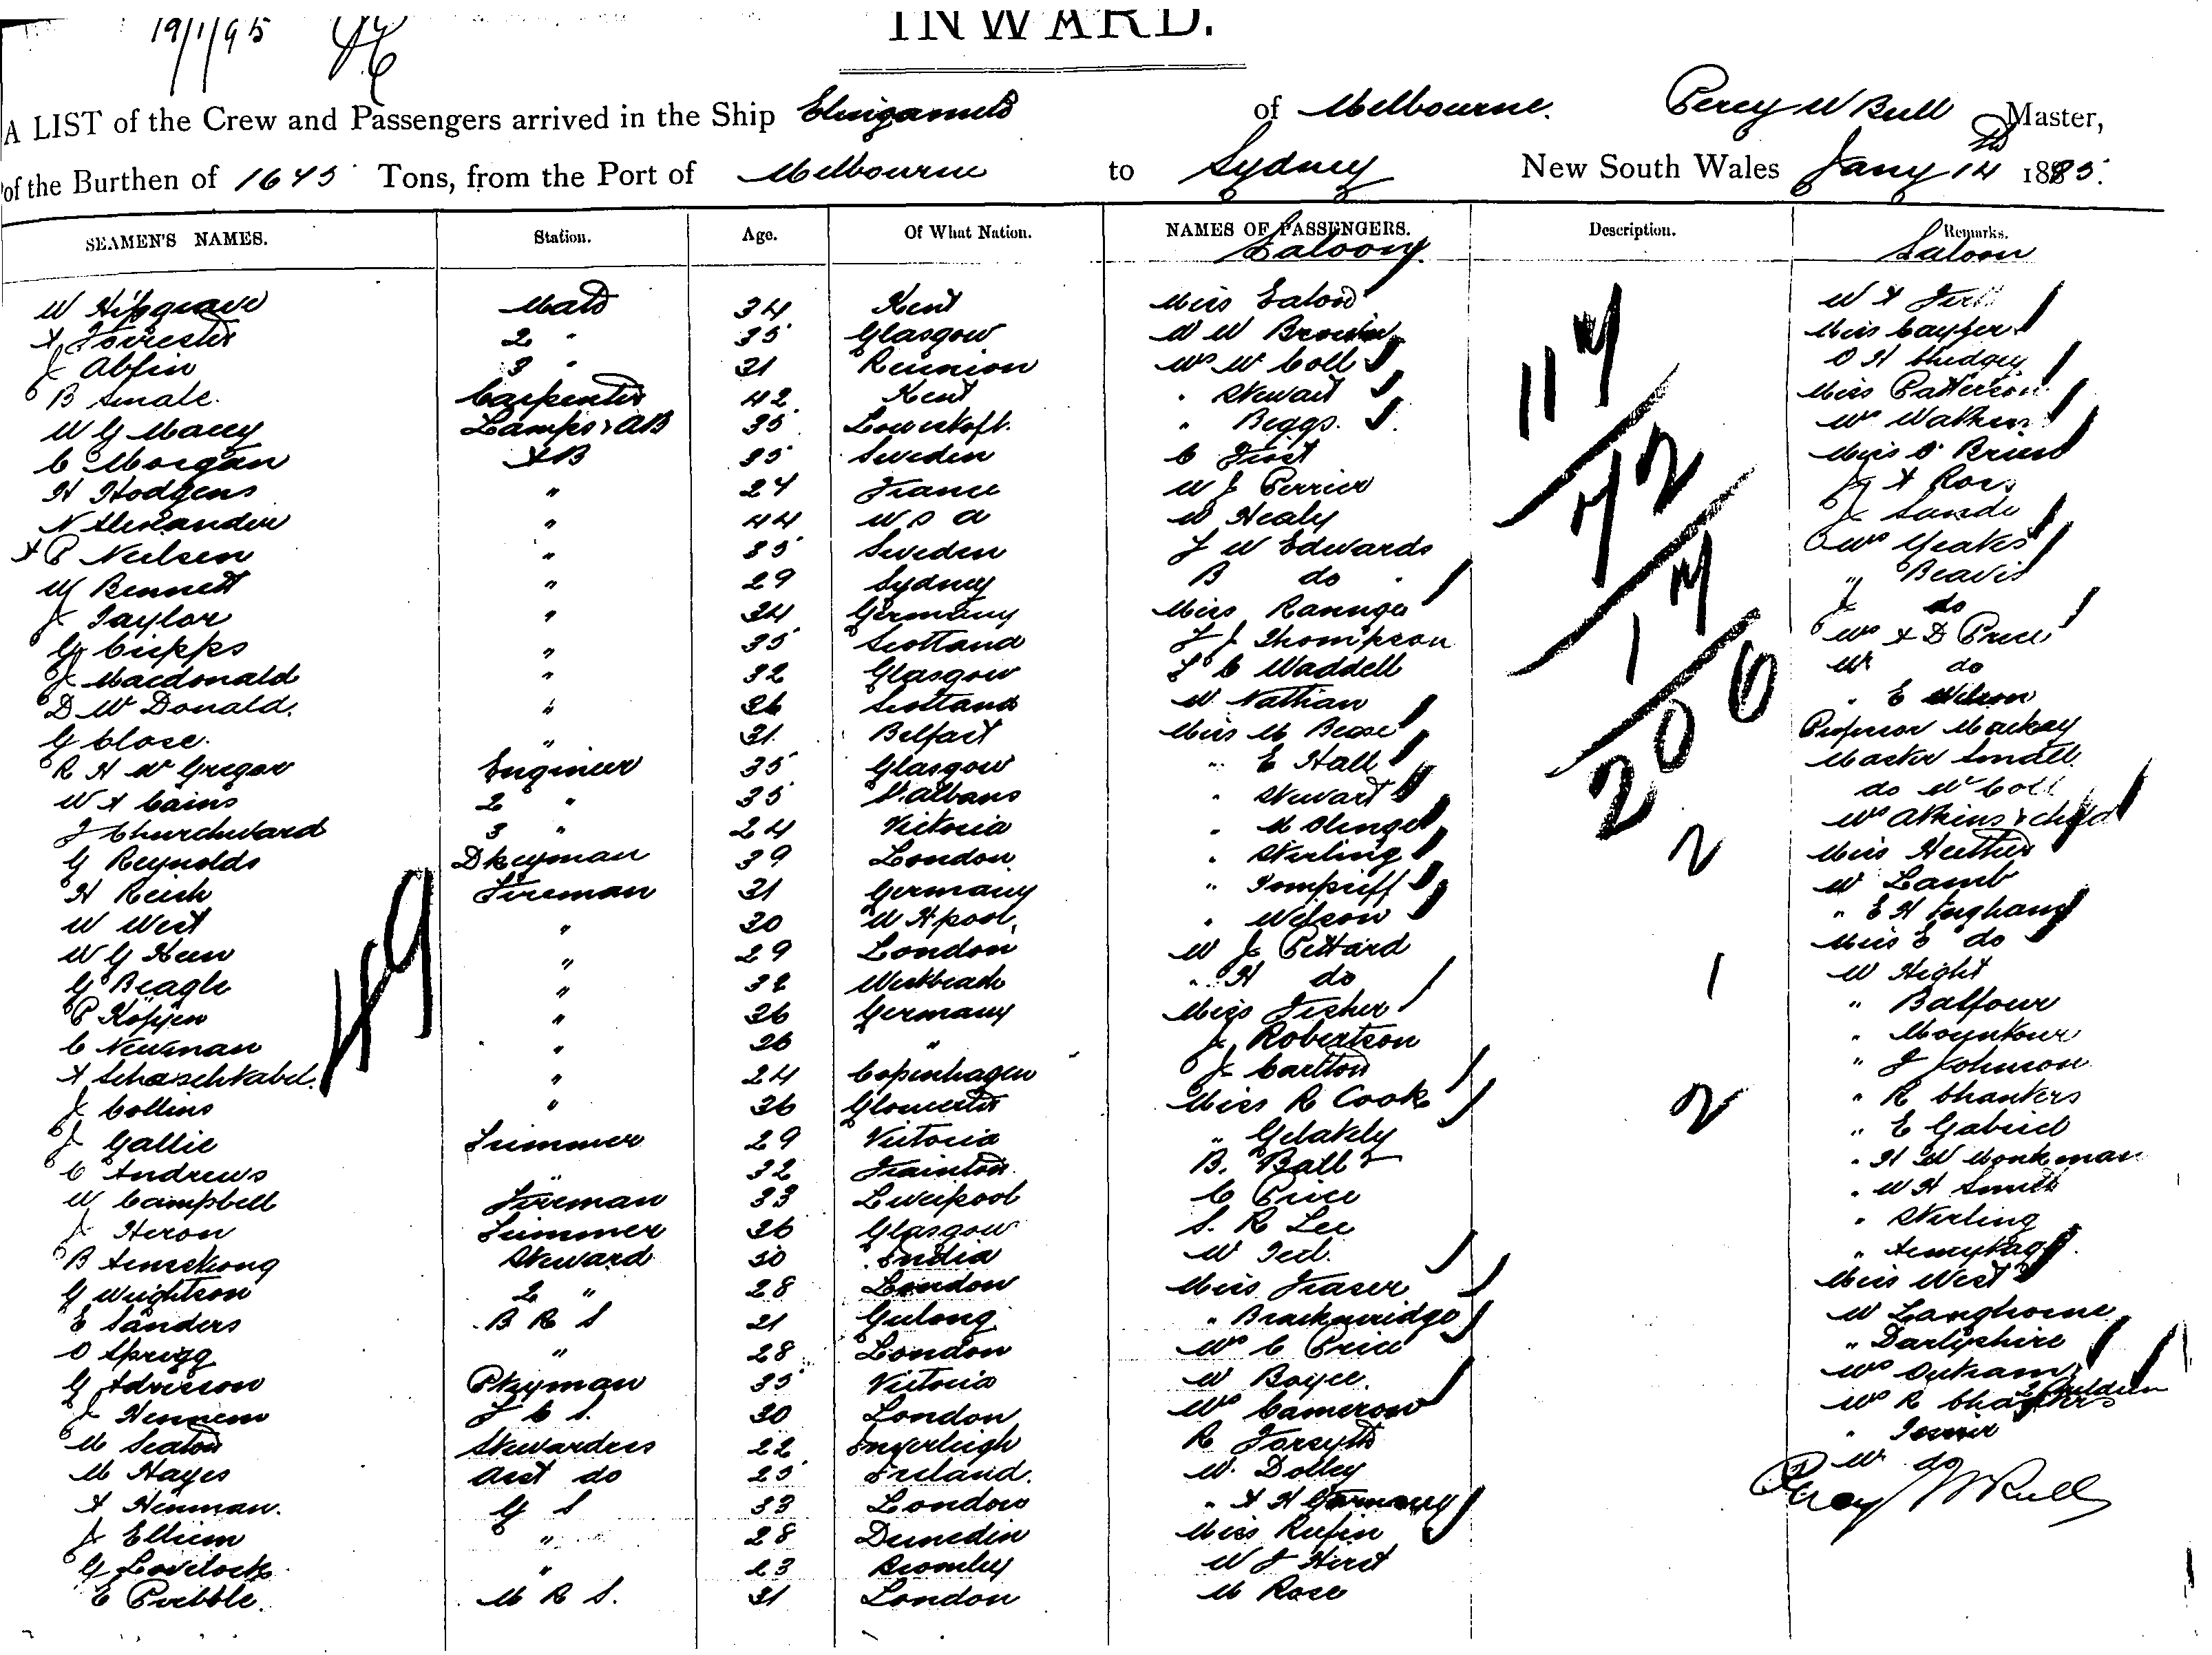 19/1/95
INWARD.
A LIST of the Crew and Passengers arrived in the Ship Elingamite of Melbourne. Percy W Bull Master,
of the Burthen of 1675 Tons, from the Port of Melbourne to Sydney New South Wales Jany 14th 1895.
SEAMEN'S NAMES. Station. Age. Of What Nation. NAMES OF PASSENGERS. Description. Remarks.
Saloon Saloon
W Hipgrave Mate 34 Kent Miss Eaton W A
A Forrester 2 " 35 Glasgow D W Brown Miss Cayzer
J Abfin 3 " 31 Reunion Mrs McColl O H
B Smale. Carpenter 42 Kent " Stewart Miss Patterson
W G Macey Lamps & AB 35 Lowestoft. " Beggs. Mrs Watkins
C Morgan AB 35 Sweden C First Miss O'Brien
H Hodgens " 24 France W J Perrier J A Ross
N " 44 U S A Mr Healy J Sande
A P Neilsen " 35 Sweden J W Edwards Mrs Yeates
W Bennett " 29 Sydney B do " Beavis
J Taylor " 34 Germany Miss J do
G Cripps " 35 Scotland J J Thompson Mrs A D Price
J Macdonald " 32 Glasgow L C Waddell Mr do
D McDonald. " 26 Scotland Mr Nathan " E Wilson
G Close. " 31 Belfast Miss M Professor Mackay
R H McGregor Engineer 35 Glasgow " E Hall Master Small
W A Cains 2 " 35 St. Albans " Stewart do McColl
J Churchward 3 " 24 Victoria " M Mrs Atkins & child
G Reynolds Dkeyman 39 London " Stirling Miss
H Reich Fireman 31 Germany " Mr Lamb
W West " 30 W H pool " Wilson " E H Ingham
W G Keen " 29 London Mr J Pittard Miss E do
G Beagle " 32 " H do Mr Hight
P Köppen " 26 Germany Miss Fisher " Balfour
C Neuman " 26 " J Robertson "
A Schaschkabel. " 24 Copenhagen J Carlton " J Johnson
J Collins " 36 Gloucester Miss R Cook " R Chankers
J Gallie Trimmer 29 Victoria " " E Gabriel
C Andrews " 32 B. Ball " H W Monkman
W Campbell Fireman 33 Liverpool C Price " W H Smith
J Heron Trimmer 26 Glasgow S. R Lee " Stirling
B Armstrong Steward 30 India Mr "
G Wrightson 2 " 28 London Miss Fraser Miss West
E Sanders B R S 21 Geelong " Breckenridge Mr Langhorne
O Sprigg " 28 London Mrs C Price " Darbyshire
G Pkeyman 35 Victoria Mr Boyce. Mrs Outram
J F C S. 30 London Mrs Cameron Mrs R 2 Children
M Seaton Stewardess 22 Inverleigh R Forsyth "
M Hayes Asst do 25 Ireland. Mr Dolley Mr do
A Henman. G S 33 London " A H Percy W Bull
J " 28 Dunedin Miss Rufin
G Lovelock " 23 Bromley W J Hirst
E Pribble. M R S. 31 London M Rose
49
117
72
17
206
2
1
2